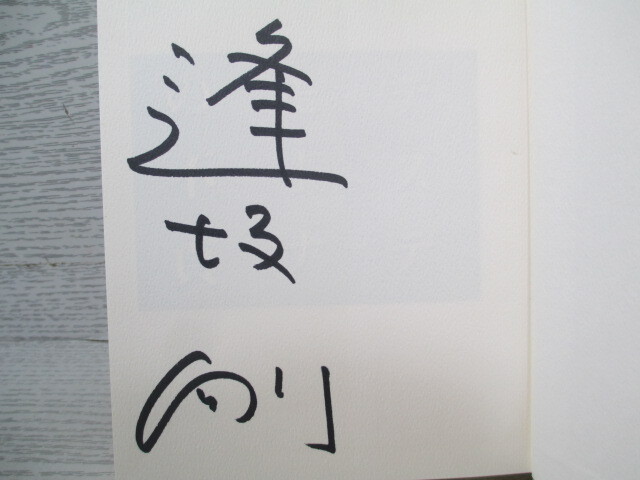 逢坂
剛